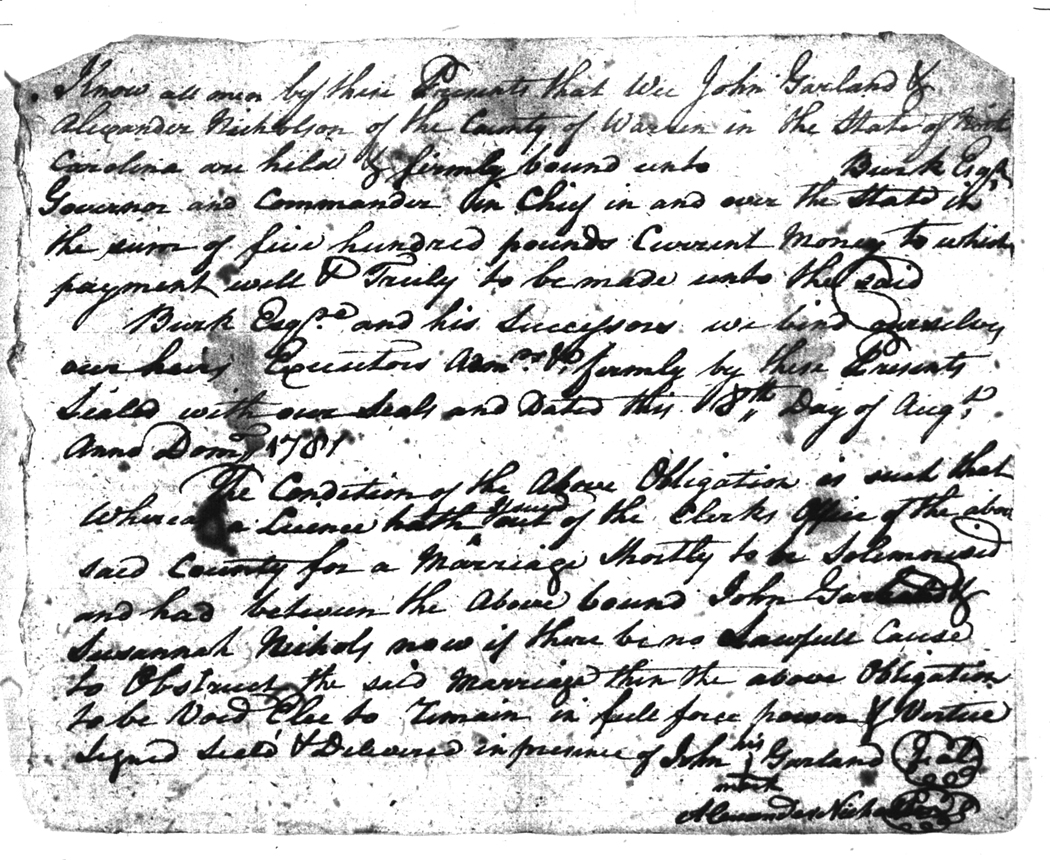 Know all men by these Presents that Wee John Garland &
Alexander Nicholson of the County of Warren in the State of North
Carolina are held & firmly bound unto Burk Esqr.
Governor and Commander in Chief in and over the State in
the sum of five hundred pounds Current Money to which
payment well & Truly to be made unto the said
Burk Esqr. and his Successors we bind ourselves
our heirs Executors Admrs. &c. firmly by these Presents
Sealed with our Seals and Dated this 18th Day of Augt.
Anno Dom. 1781
The Condition of the Above Obligation is such that
Whereas a Licence hath Issued out of the Clerks Office of the above
said County for a Marriage Shortly to be Solemnised
and had between the Above bound John Garland &
Susannah Nichols now if there be no Lawfull Cause
to Obstruct the said Marriage then the above Obligation
to be Void Else to Remain in full force power & Vertue
Signed Seald & Delivered in presence of John his Garland Seal
mark
Alexander Nicholson